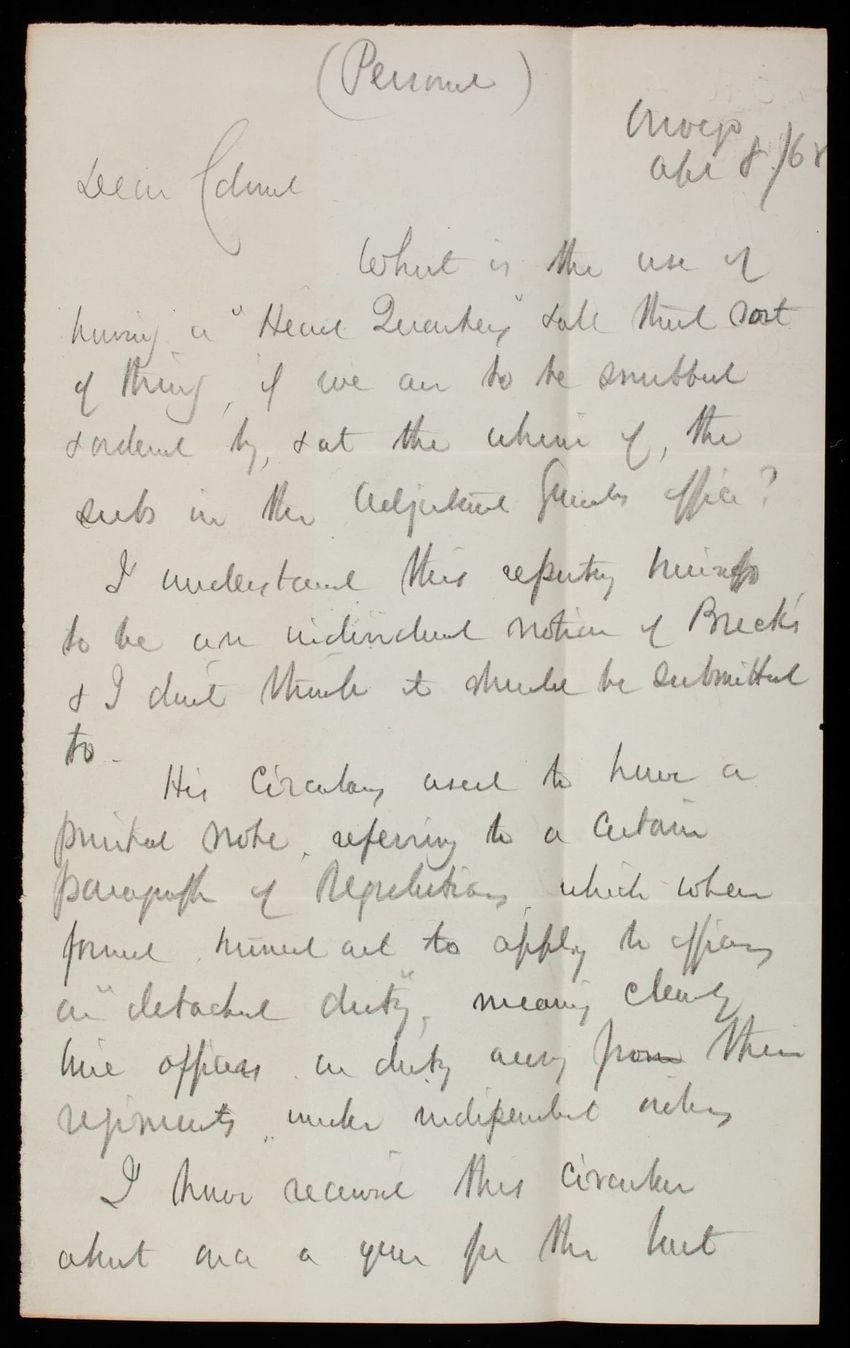 (Personal)
Apl 8/68
Dear Colonel
What is the use of
having a "Head Quarters" & all that sort
of thing, if we are to be snubbed
& ordered by, & at the whim of, the
subs in the Adjutant Generals office?
I understand this reporting business
to be an individual notion of Breck's
& I dont think it should be submitted
to -
His Circulars used to have a
printed note, referring to a certain
paragraph of Regulations, which when
found, turned out to apply to officers
on "detached duty", meaning clearly
line officers on duty away from their
regiments, under independent orders
I have received this circular
about once a year for the last